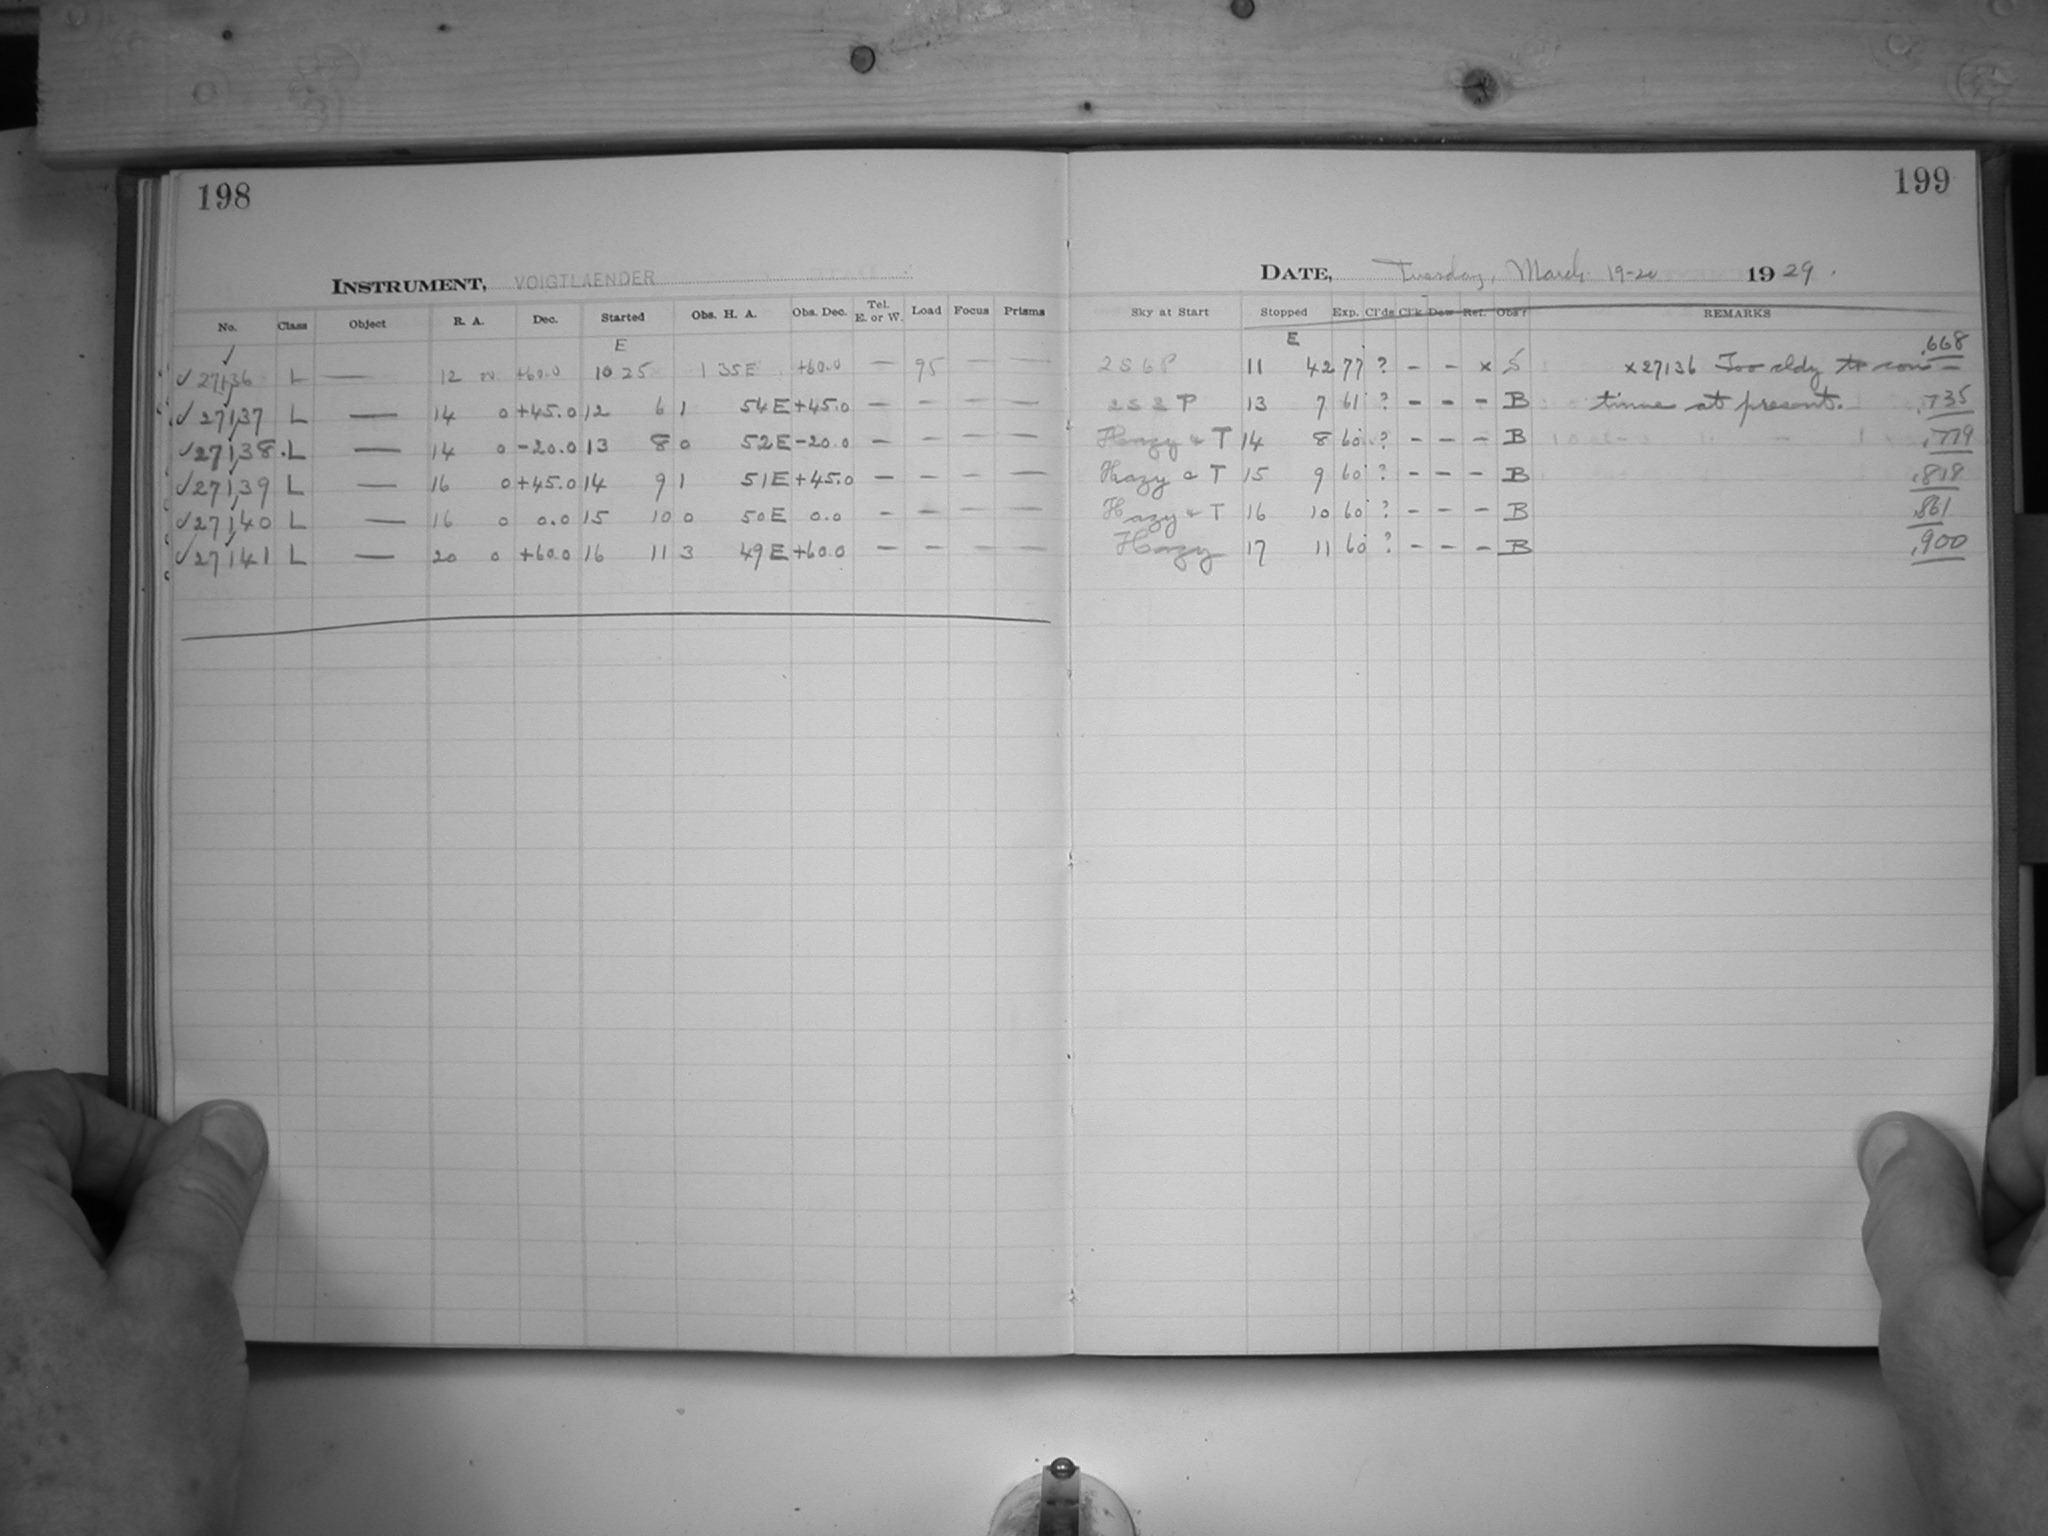 198
INSTRUMENT, VOIGTLAENDER
No. Class Object R. A. Dec. Started Obs. H. A. Obs. Dec. Tel. E. or W. Load Focus Prisms
E
✓ 27136 L — 12 0 +60.0 10 25 1 35E +60.0 — 95 — —
✓ 27137 L — 14 0 +45.0 12 6 1 54E +45.0 — — — —
✓ 27138 L — 14 0 -20.0 13 8 0 52E -20.0 — — — —
✓ 27139 L — 16 0 +45.0 14 9 1 51E +45.0 — — — —
✓ 27140 L — 16 0 0.0 15 10 0 50E 0.0 — — — —
✓ 27141 L — 20 0 +60.0 16 11 3 49E +60.0 — — — —
199
DATE, Tuesday, March 19-20 1929.
Sky at Start Stopped Exp. Cl'ds Cl'k Dew Ref. Obs'r REMARKS
E
2S6P 11 42 77 ? - - x S x27136 Too cldy to con- .668
2S2P 13 7 61 ? - - - B tinue at present. .735
Hazy & T 14 8 60 ? - - - B .779
Hazy & T 15 9 60 ? - - - B .818
Hazy & T 16 10 60 ? - - - B .861
Hazy 17 11 60 ? - - - B .900